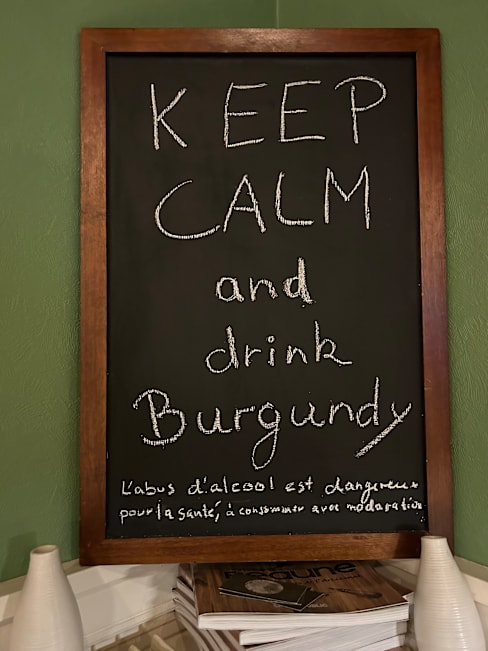 KEEP
CALM
and
drink
Burgundy
L'abus d'alcool est dangereux
pour la santé, à consommer avec modération